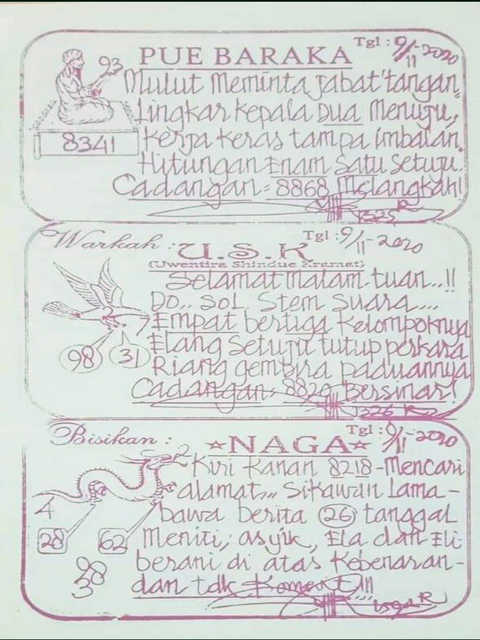 PUE BARAKA
Tgl : 9/11-2020
93
8341
Mulut Meminta Jabat tangan,
Lingkar kepala Dua Menuju,
Kerja keras tampa imbalan.
Hitungan Enam Satu Setuju.
Cadangan - 8868 Melangkah!
Warkah :
U.S.K
Tgl : 9/11-2020
(Uwentira Shindue Kramat)
Selamat malam tuan..!!
Do.. Sol Stem Suara....
Empat bertiga kelompoknya
Elang Setuju tutup perkara
Riang gembira paduannya
Cadangan, 8820 Bersinar!
98
31
Bisikan :
NAGA
Tgl : 9/11-2020
Kiri Kanan 8218 - Mencari
alamat,,, Sikawan Lama -
bawa berita 26 tanggal
Meniti, asyik, Ela dan Eli
berani di atas Kebenaran -
dan tdk Koment !!!
4
28
62